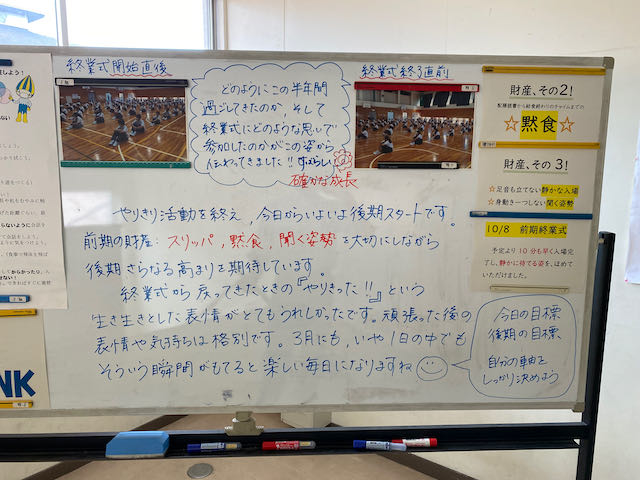 終業式開始直後
どのようにこの半年間
過ごしてきたのか、そして
終業式にどのような思いで
参加したのかがこの姿から
伝わってきました!!すばらしい
確かな成長
終業式終了直前
財産、その2!
配膳読書から給食終わりのチャイムまでの
☆黙食☆
財産、その3!
☆足音も立てない静かな入場
☆身動き一つしない聞く姿勢
10/8 前期終業式
予定より10分も早く入場完
了し、静かに待てる姿を、ほめてい
ただきました。
やりきり活動を終え、今日からいよいよ後期スタートです。
前期の財産:スリッパ,黙食,聞く姿勢を大切にしながら
後期さらなる高まりを期待しています。
終業式から戻ってきたときの『やりきった!!』という
生き生きとした表情がとてもうれしかったです。頑張った後の
表情や気持ちは格別です。3月にも、いや1日の中でも
そういう瞬間がもてると楽しい毎日になりますね
今日の目標
後期の目標、
自分の軸を
しっかり決めよう
NK